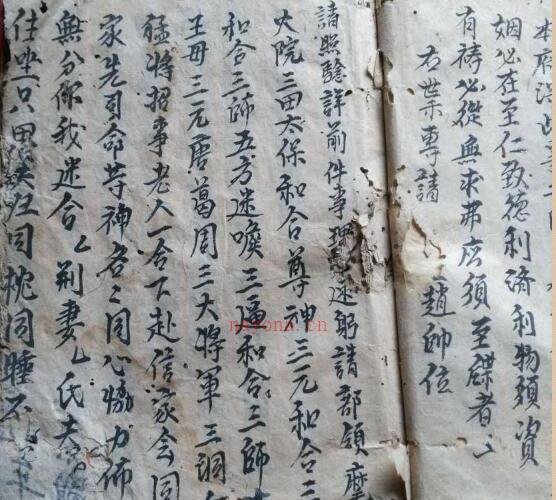 本府
姻必在至仁致德利济利物须資
有祷必從無求弗应须至牒者
右牒專請
趙帥位
請照驗詳前件事理速躬請部領
大院三田太保和合尊神三元和合三
和合三師五方迷喚三通和合三師
王母三元唐葛周三大將軍三洞
猛將招事老人一合下赴信家会同
家先司命等神名〻同心協力佈
無分你我迷合〻荆妻〻氏夫
住坐只思归同枕同睡不
nayona.cn